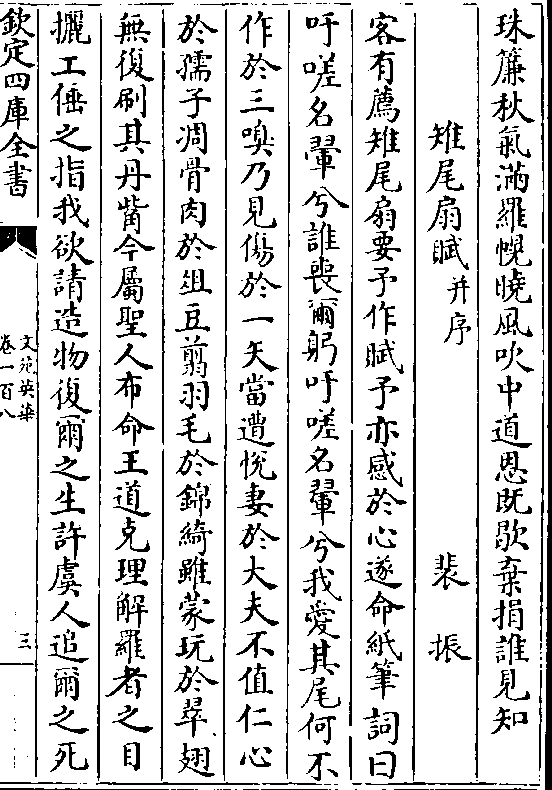 珠簾秋氣滿羅幌曉風吹中道恩既歇棄捐誰見知
雉尾扇賦并序 裴振
客有薦雉尾扇要予作賦予亦感於心遂命紙筆詞曰
吁嗟名翬兮誰喪爾躬吁嗟名翬兮我愛其尾何不
作於三嗅乃見傷於一矢當遭恱妻於大夫不值仁心
於孺子凋骨肉於俎豆翦羽毛於錦綺雖蒙玩於翠翅
無復刷其丹觜今屬聖人布命王道克理解羅者之目
攦工倕之指我欲請造物復爾之生許虞人追爾之死
欽定四庫全書
文苑英華
卷一百八
三